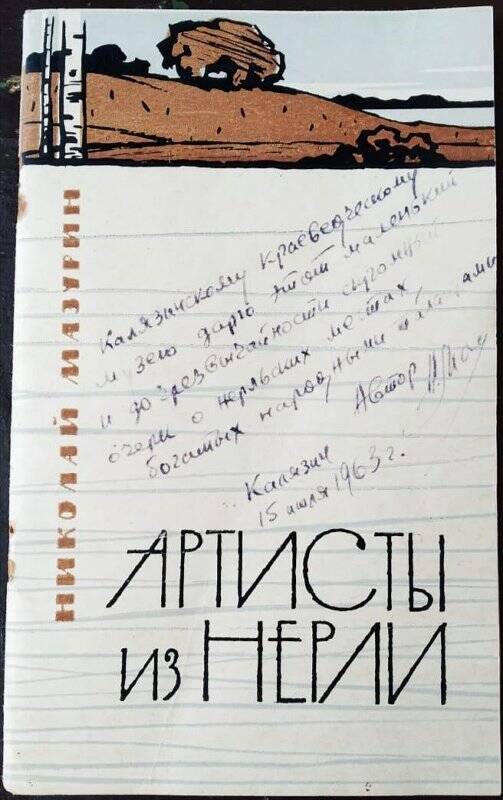 НИКОЛАЙ МАЗУРИН
Калязинскому Краеведческому
музею дарю этот маленький
и до чрезвычайности скромный
очерк о нерльских местах,
богатых народными талантами
Автор
Калязин
15 июля 1963 г.
АРТИСТЫ
ИЗ НЕРЛИ